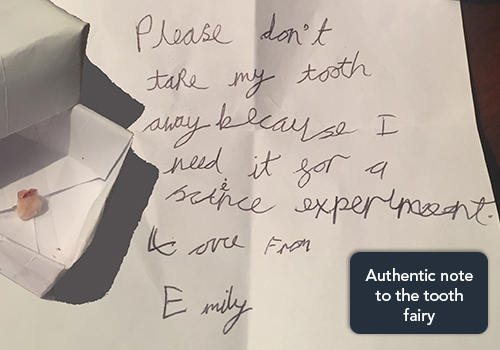 Please don't
take my tooth
away because I
need it for a
science experiment.
Love From
Emily
Authentic note
to the tooth
fairy